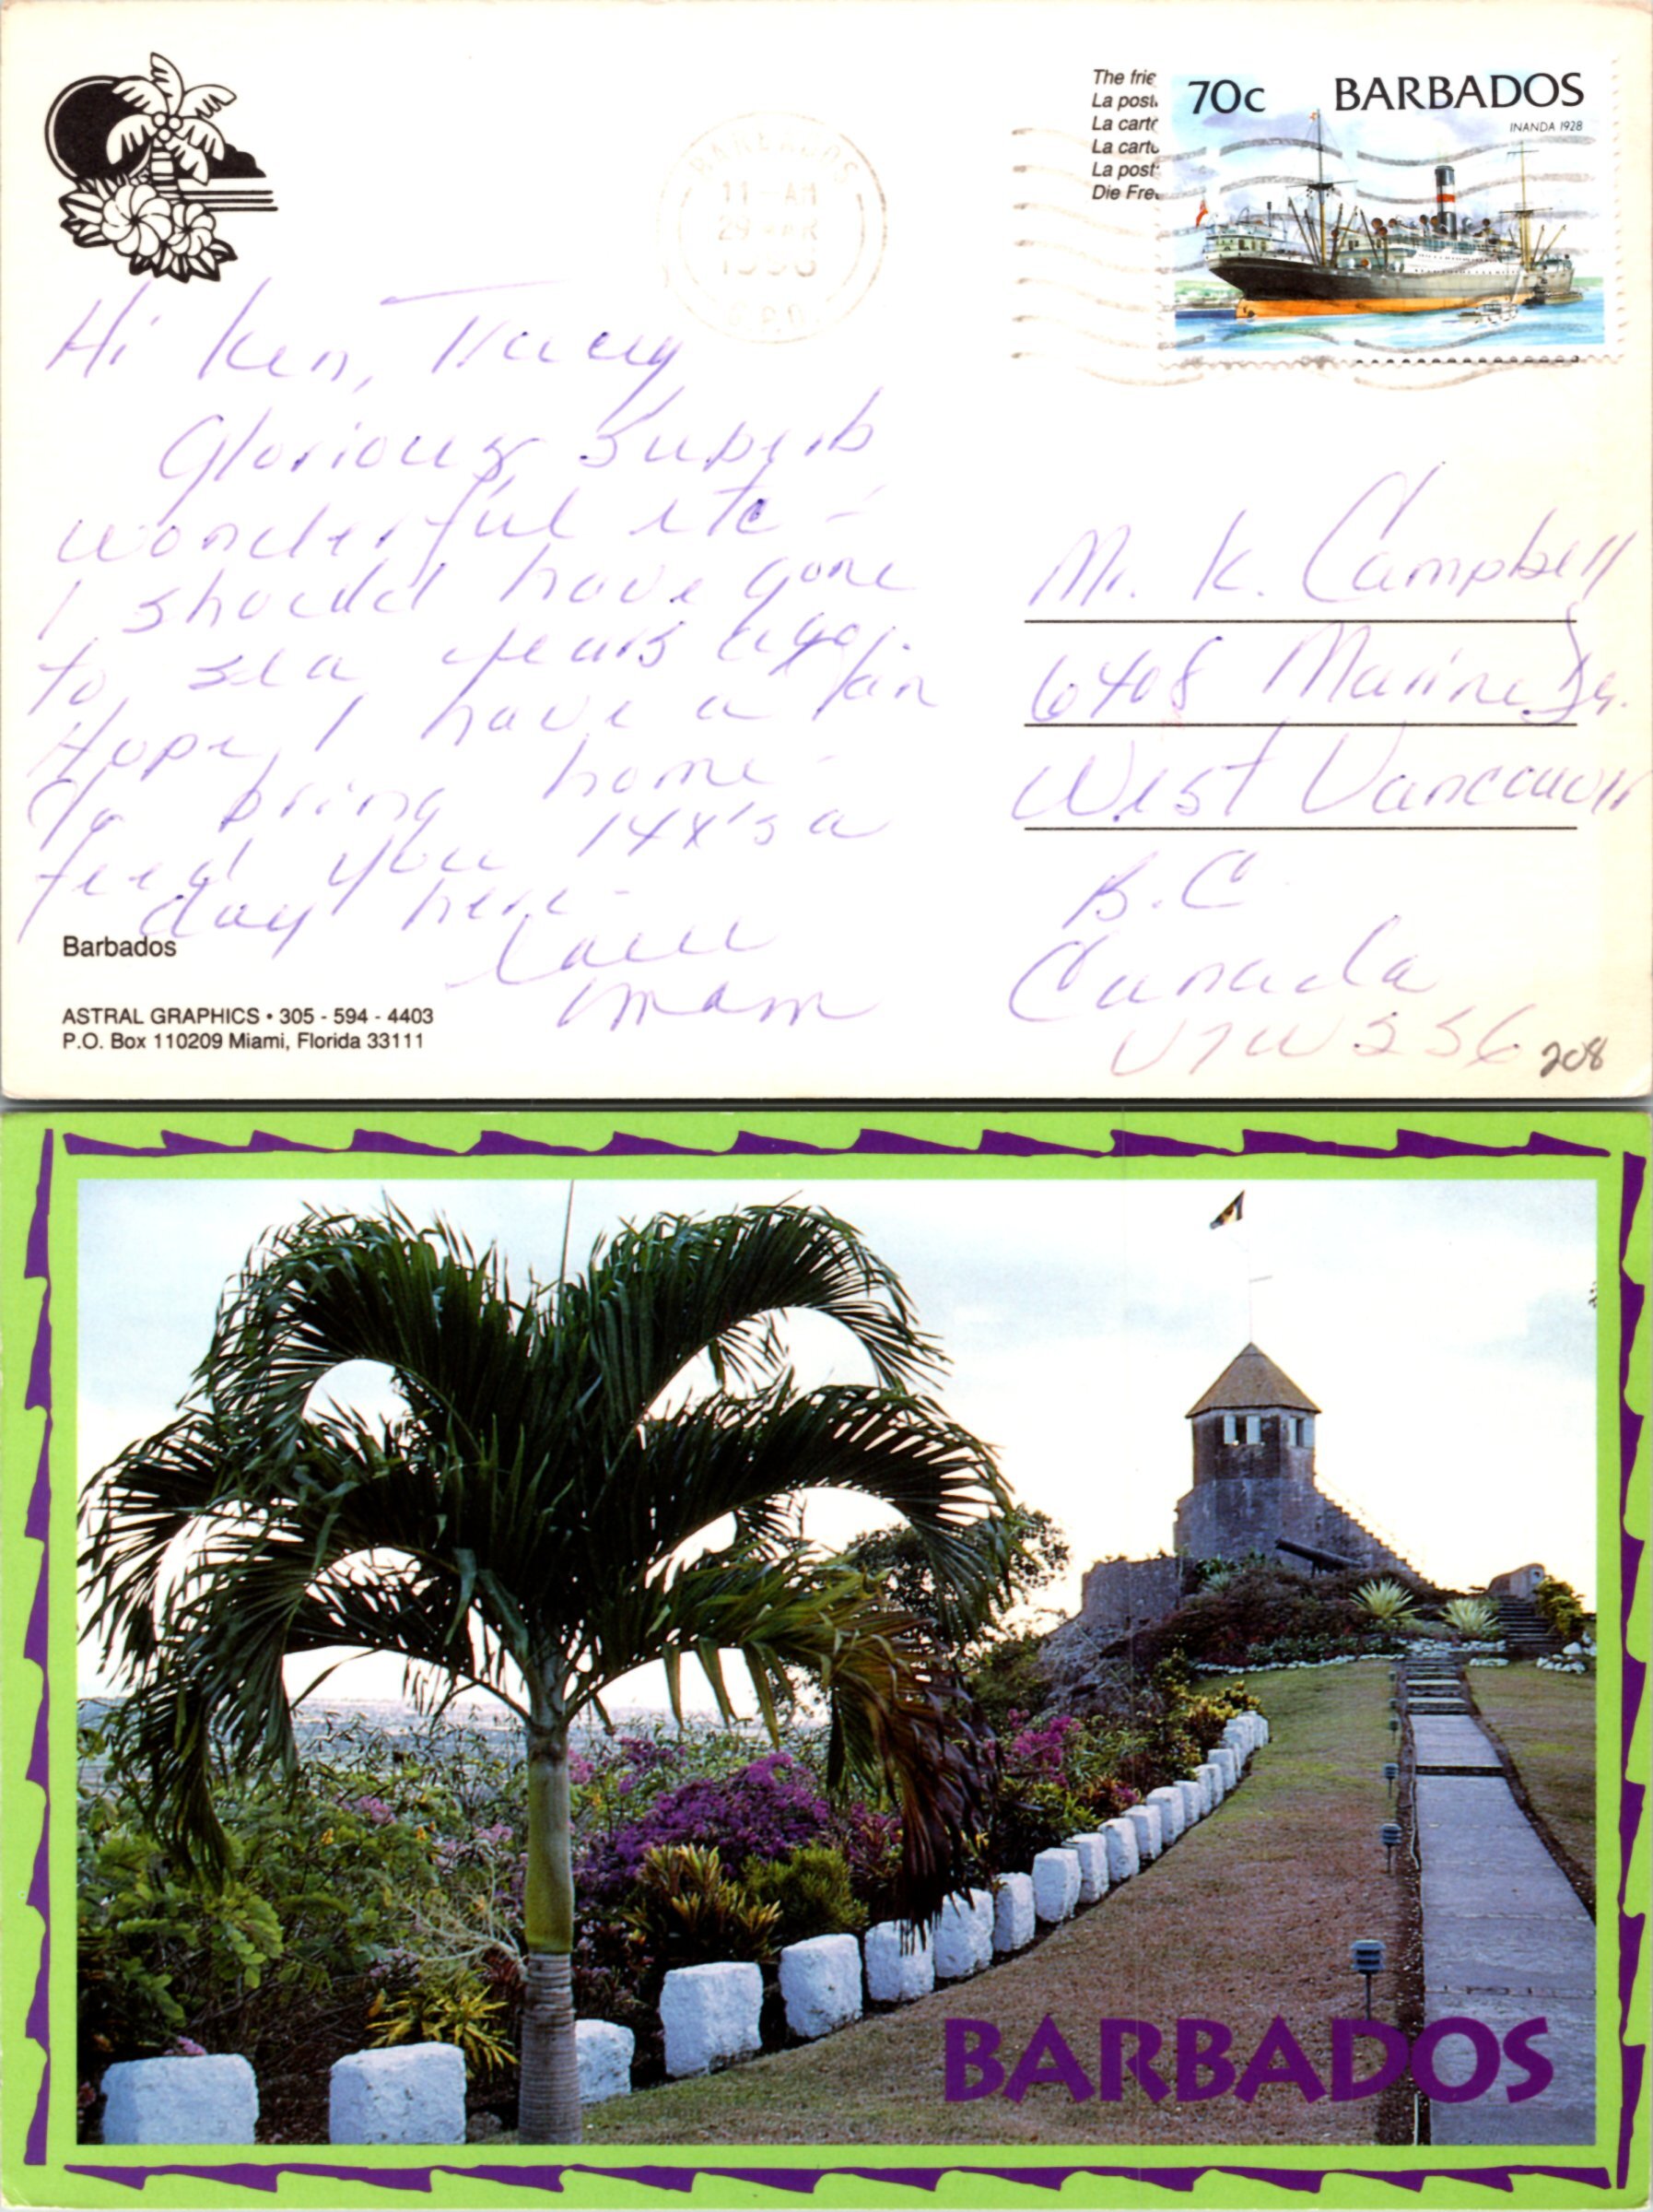 The frie
La post
La carte
La carte
La post
Die Fre
70c BARBADOS
INANDA 1928
BARBADOS
11 - AM
29
G.P.O.
Hi Ken, Tracy
Glorious Superb
wonderful etc -
I should have gone
to sea years ago.
Hope I have a tan
To bring home -
feed you 14x's a
day here -
Love
Mom
Mr. K. Campbell
6408 Marine Dr.
West Vancouver
B.C
Canada
V7W 2S6
208
Barbados
ASTRAL GRAPHICS • 305 - 594 - 4403
P.O. Box 110209 Miami, Florida 33111
BARBADOS